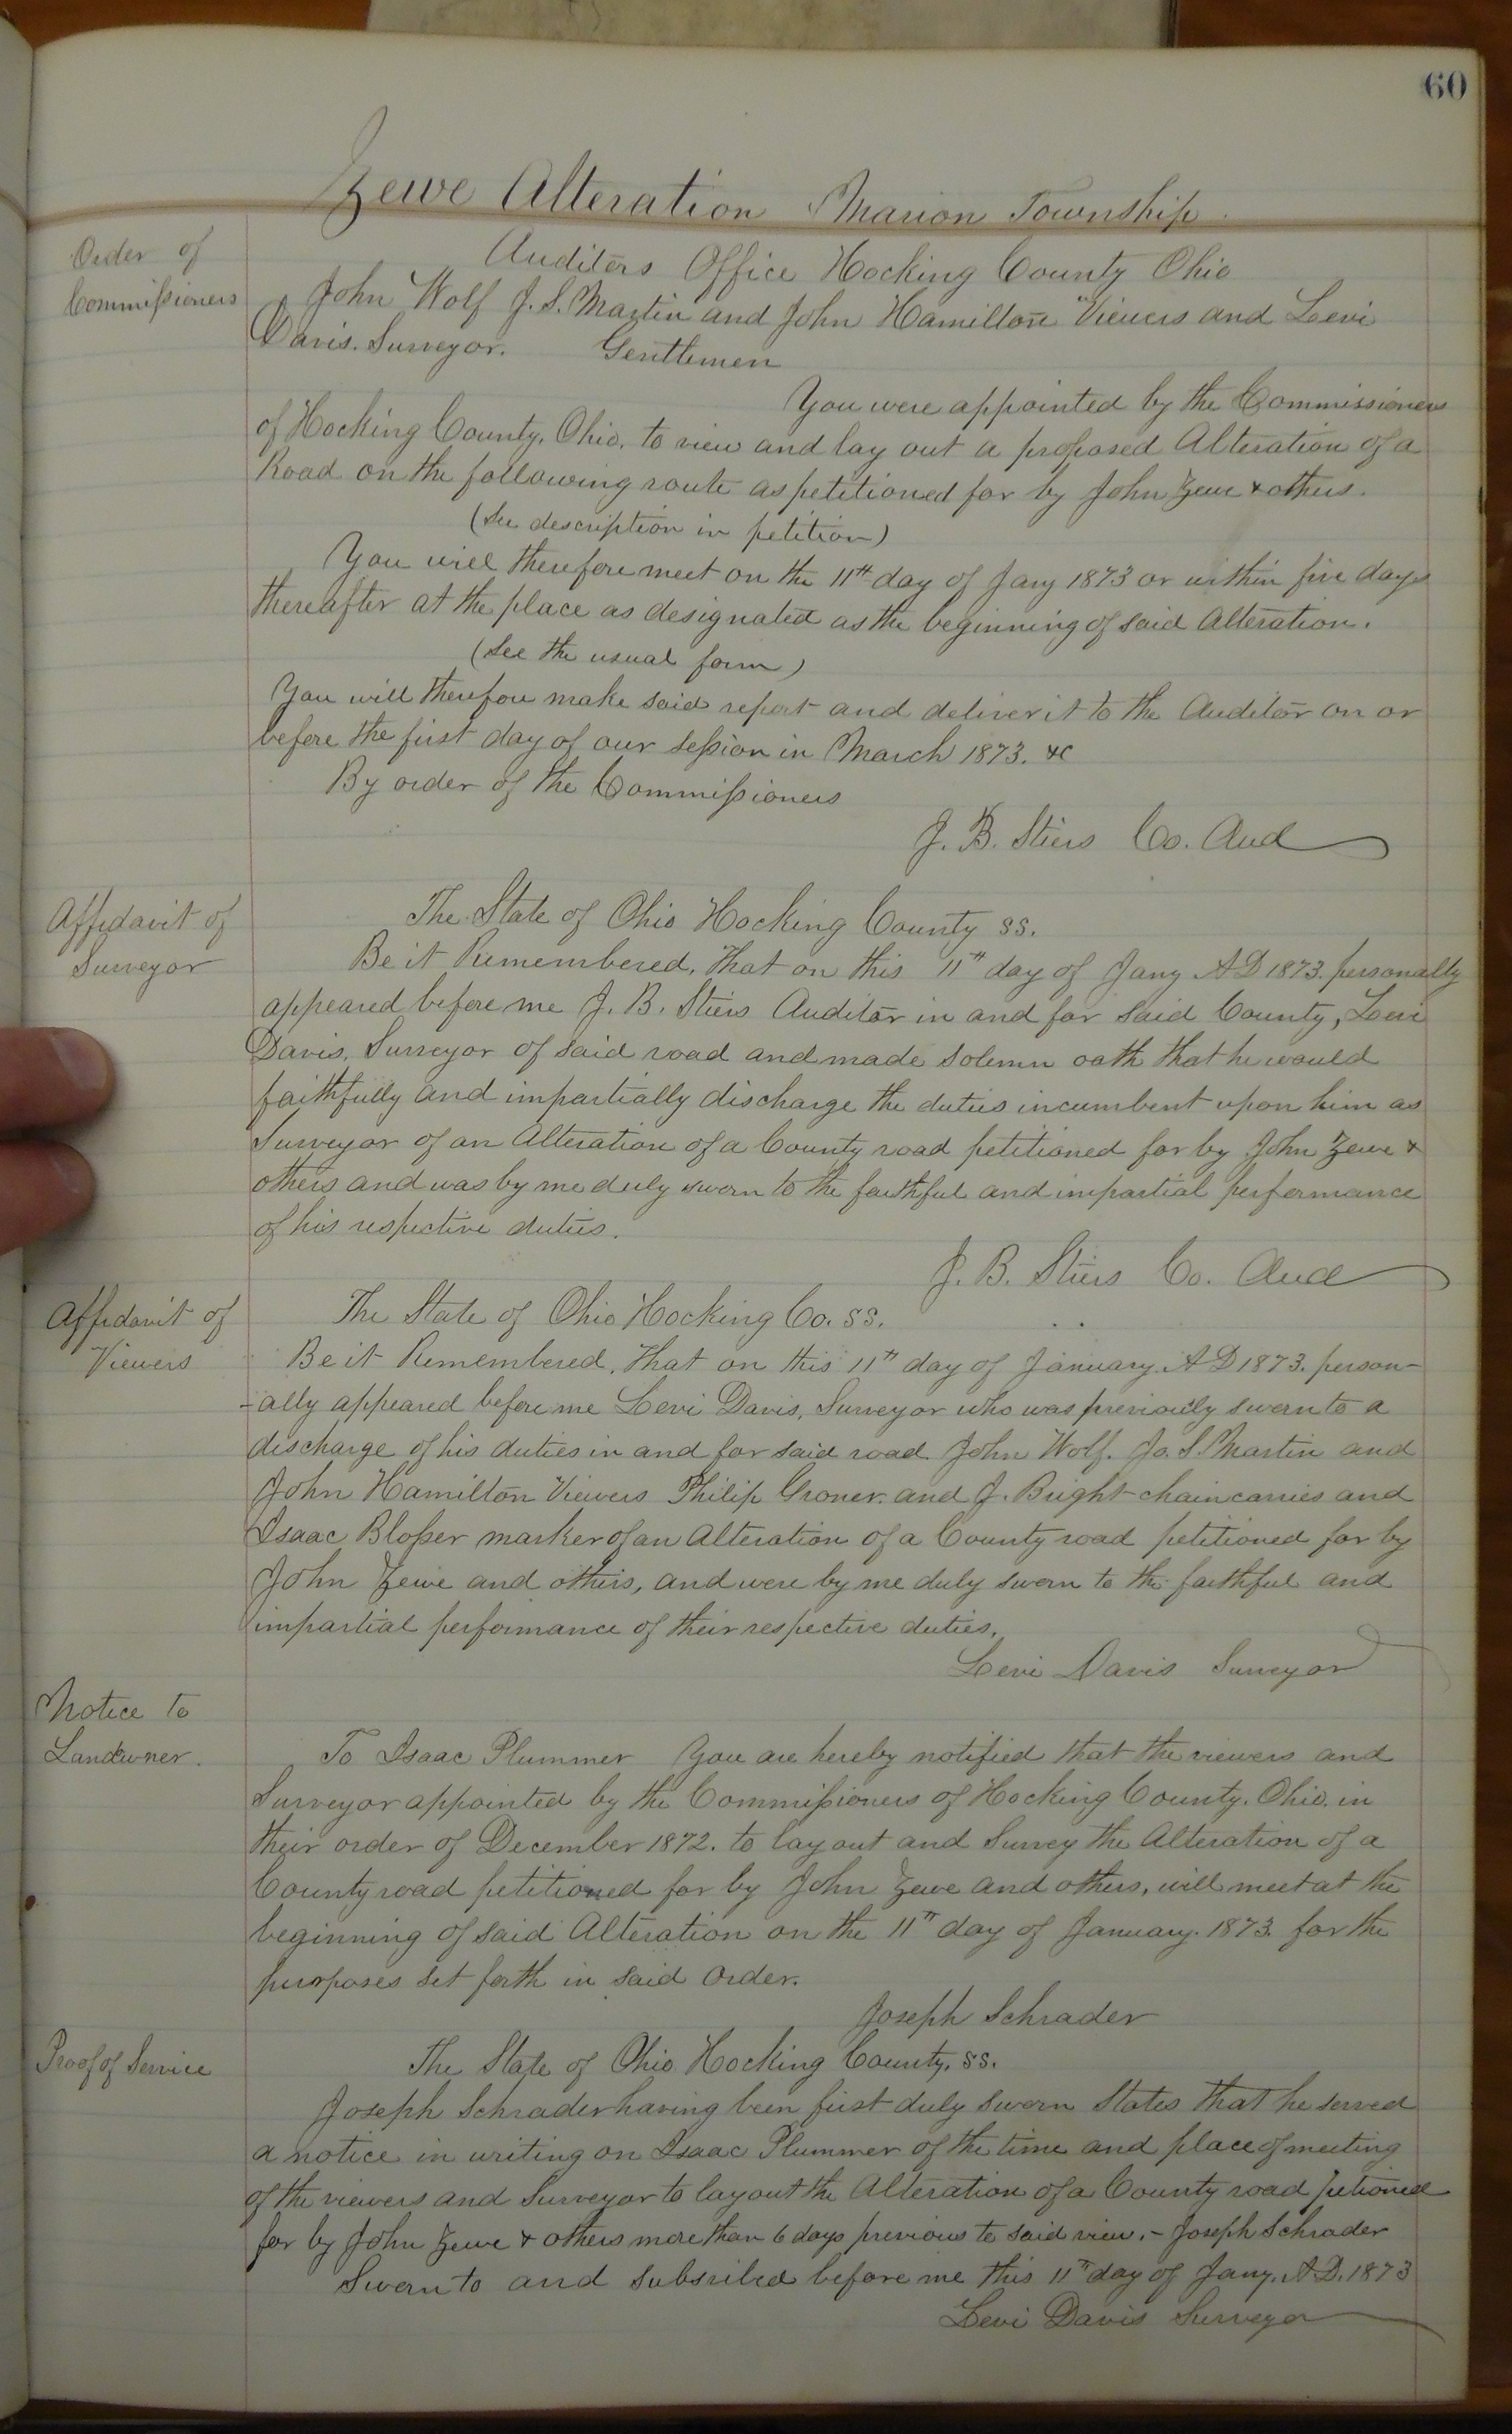 60
Zewe Alteration Marion Township.
Order of
Commissioners
Auditors Office Hocking County Ohio
John Wolf J. S. Martin and John Hamilton Viewers and Levi
Davis. Surveyor. Gentlemen
You were appointed by the Commissioners
of Hocking County, Ohio, to view and lay out a proposed Alteration of a
Road on the following route as petitioned for by John Zewe & others.
(See description in petition)
You will therefore meet on the 11th day of Jany 1873 or within five days
thereafter at the place as designated as the beginning of said Alteration.
(See the usual form)
You will therefore make said report and deliver it to the Auditor on or
before the first day of our session in March 1873. &c
By order of the Commissioners
J. B. Stiers Co. Aud
Affidavit of
Surveyor
The State of Ohio Hocking County ss.
Be it Remembered, that on this 11th day of Jany AD 1873. personally
appeared before me J. B. Stiers Auditor in and for said County, Levi
Davis, Surveyor of said road and made solemn oath that he would
faithfully and impartially discharge the duties incumbent upon him as
Surveyor of an Alteration of a County road petitioned for by John Zewe &
others and was by me duly sworn to the faithful and impartial performance
of his respective duties.
J. B. Stiers Co. Aud
Affidavit of
Viewers
The State of Ohio Hocking Co. ss.
Be it Remembered, that on this 11th day of January. AD 1873. person-
-ally appeared before me Levi Davis, Surveyor who was previously sworn to a
discharge of his duties in and for said road John Wolf. Jo. S. Martin and
John Hamilton Viewers Philip Groner. and J. Bright chain carries and
Isaac Blosser marker of an Alteration of a County road petitioned for by
John Zewe and others, and were by me duly sworn to the faithful and
impartial performance of their respective duties.
Levi Davis Surveyor
Notice to
Landowner.
To Isaac Plummer You are hereby notified that the viewers and
Surveyor appointed by the Commissioners of Hocking County. Ohio. in
their order of December 1872. to lay out and Survey the Alteration of a
County road petitioned for by John Zewe and others, will meet at the
beginning of said Alteration on the 11th day of January. 1873. for the
purposes set forth in said Order.
Joseph Schrader
Proof of Service
The State of Ohio Hocking County, ss.
Joseph Schrader having been first duly sworn States that he served
a notice in writing on Isaac Plummer of the time and place of meeting
of the viewers and Surveyor to lay out the Alteration of a County road petioned
for by John Zewe & others more than 6 days previous to said view. - Joseph Schrader
Sworn to and subsribed before me this 11th day of Jany. A.D. 1873
Levi Davis Surveyor